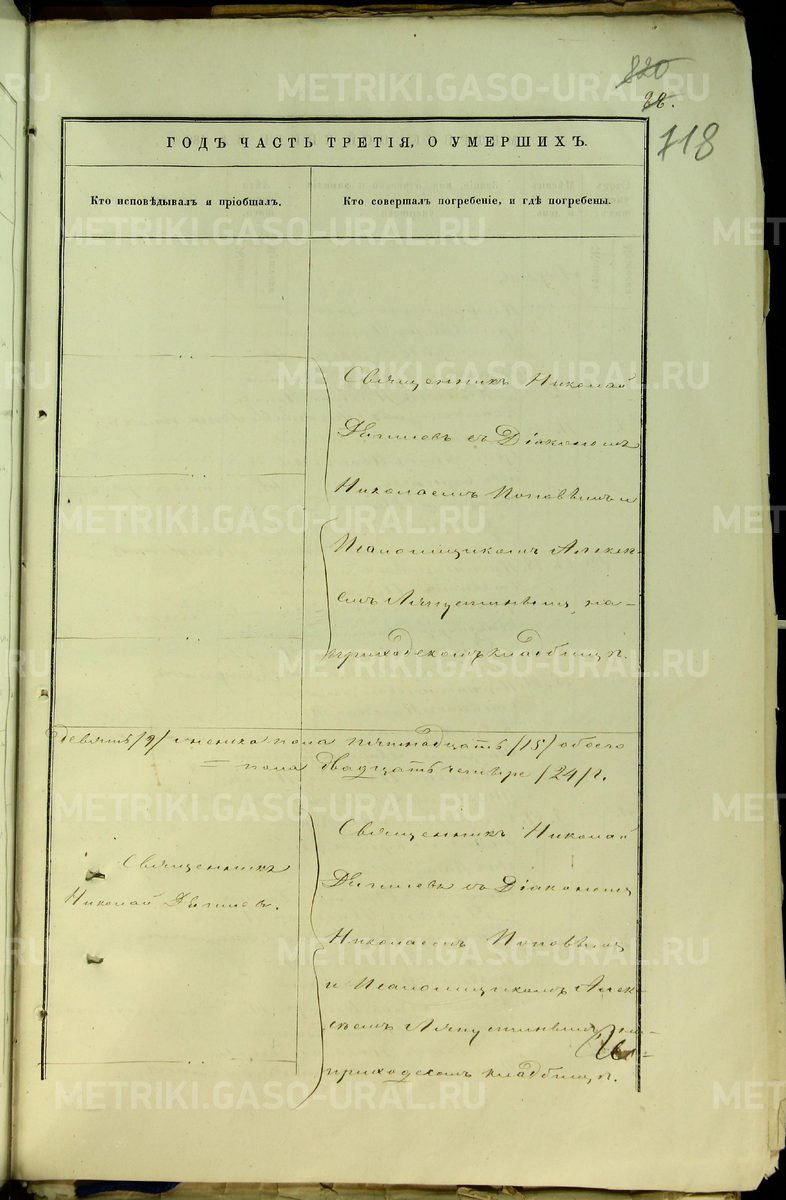 820
38.
718
ГОДЪ ЧАСТЬ ТРЕТІЯ, О УМЕРШИХЪ.
Кто исповѣдывалъ и пріобщалъ.
Кто совершалъ погребеніе, и гдѣ погребены.
Священникъ Николай
съ Діакономъ
Николаемъ Поповымъ и
Псаломщикомъ Алексе-
емъ на
приходскомъ кладбищѣ.
девять /9/ женска пола пятнадцать /15/ обоего
= пола двадцать четыре /24/.
Священникъ Николай
съ Діакономъ
Священникъ
Николай
Николаемъ Поповымъ
и Псаломщикомъ Алек-
сѣемъ на
приходскомъ кладбищѣ.
METRIKI.GASO-URAL.RU